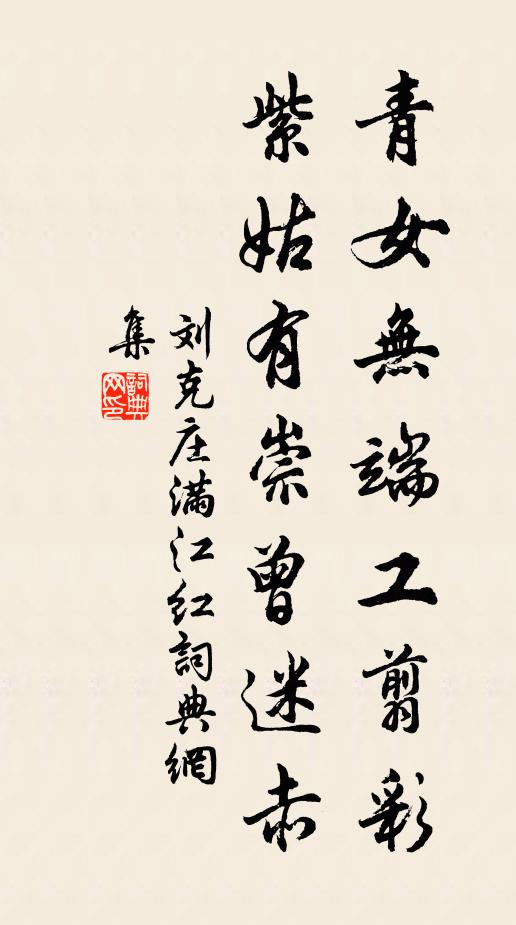 青女無端工剪彩
紫姑有祟曾迷赤
刘克庄满江红詞典網
集
詞典网印